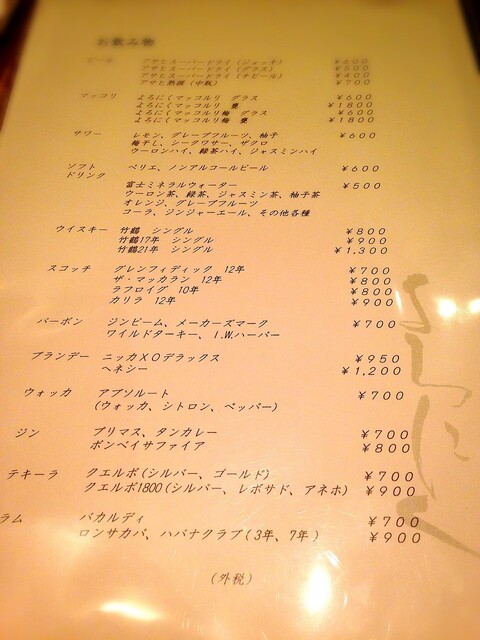 お飲み物
ビール アサヒスーパードライ(ジョッキ) ¥600
アサヒスーパードライ(グラス) ¥500
アサヒスーパードライ(チビール) ¥400
アサヒ熟撰(中瓶) ¥700
マッコリ よろにくマッコルリ グラス ¥600
よろにくマッコルリ 甕 ¥1800
よろにくマッコルリ梅 グラス ¥600
よろにくマッコルリ梅 甕 ¥1800
サワー レモン、グレープフルーツ、柚子 ¥600
梅干し、シークワサー、ザクロ
ウーロンハイ、緑茶ハイ、ジャスミンハイ
ソフト ペリエ、ノンアルコールビール ¥600
ドリンク
富士ミネラルウォーター ¥500
ウーロン茶、緑茶、ジャスミン茶、柚子茶
オレンジ、グレープフルーツ
コーラ、ジンジャーエール、その他各種
ウイスキー 竹鶴 シングル ¥800
竹鶴17年 シングル ¥900
竹鶴21年 シングル ¥1,300
スコッチ グレンフィディック 12年 ¥700
ザ・マッカラン 12年 ¥800
ラフロイグ 10年 ¥800
カリラ 12年 ¥900
バーボン ジンビーム、メーカーズマーク ¥700
ワイルドターキー、I.W.ハーパー
ブランデー ニッカXOデラックス ¥950
ヘネシー ¥1,200
ウォッカ アブソルート ¥700
(ウォッカ、シトロン、ペッパー)
ジン プリマス、タンカレー ¥700
ボンベイサファイア ¥800
テキーラ クエルボ(シルバー、ゴールド) ¥700
クエルボ1800(シルバー、レポサド、アネホ) ¥900
ラム バカルディ ¥700
ロンサカパ、ハバナクラブ(3年、7年) ¥900
(外税)
よろにく